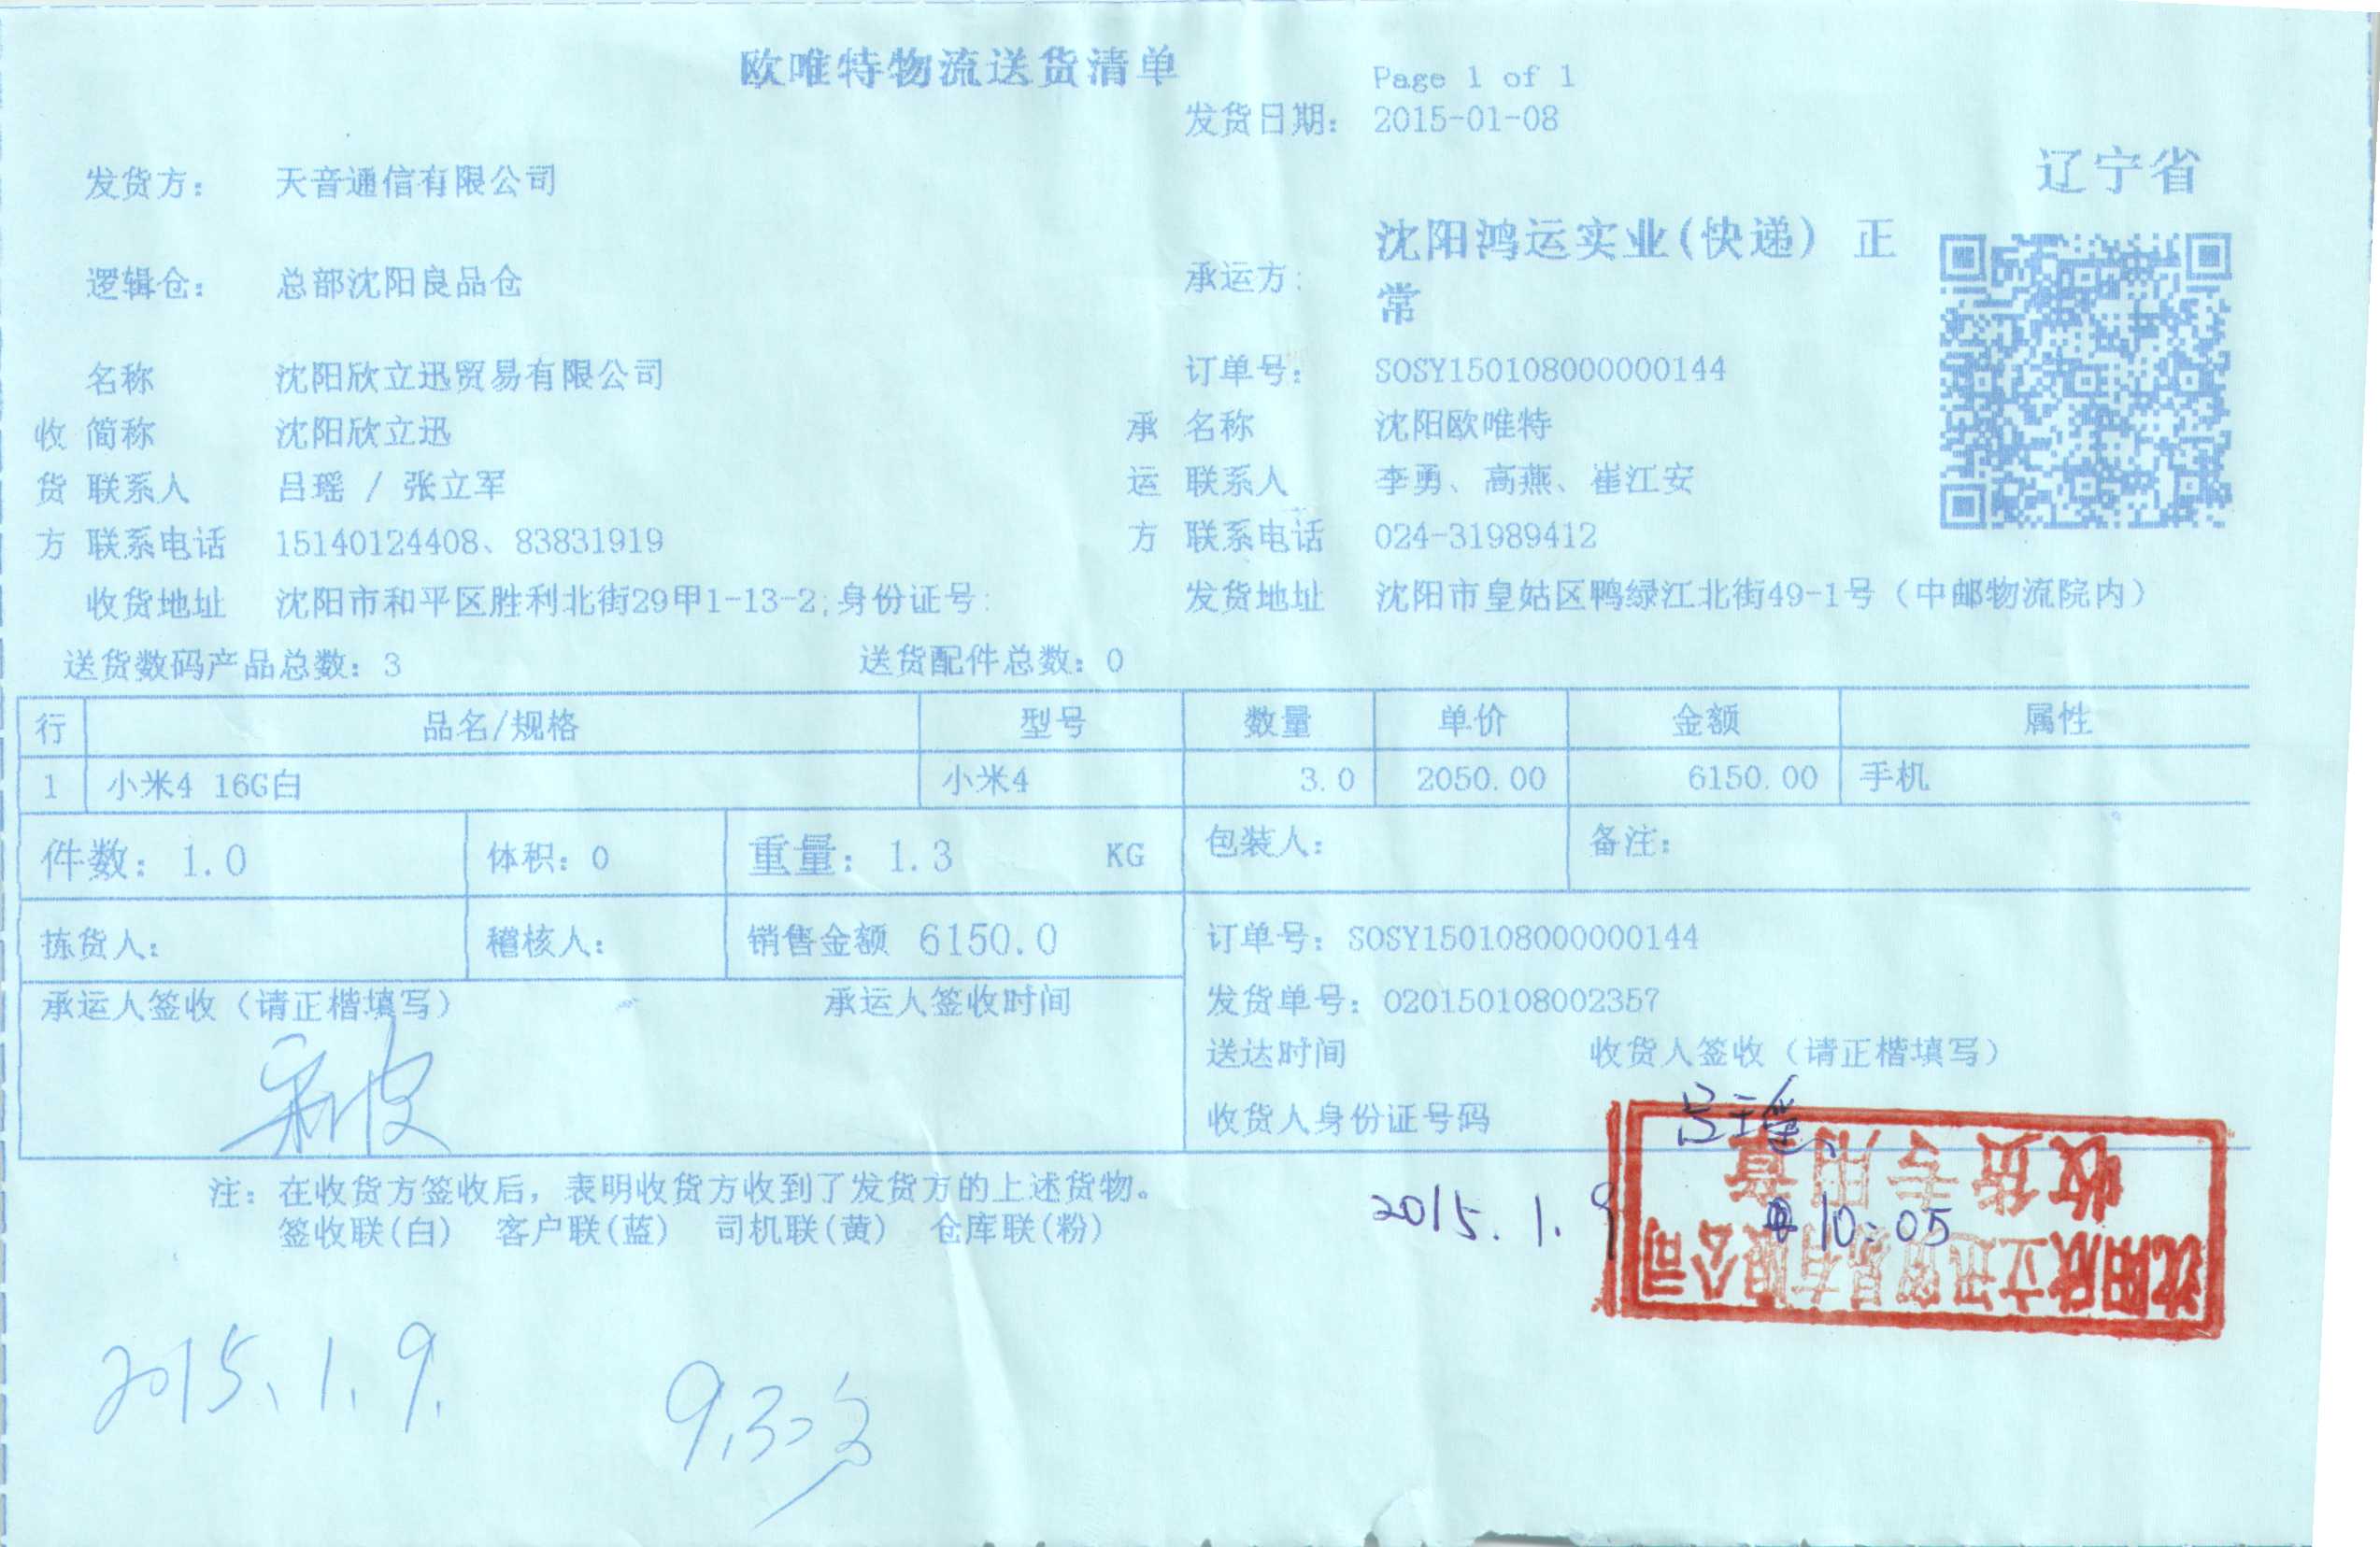 欧唯特物流送货清单
Page 1 of 1
发货日期: 2015-01-08
辽宁省
发货方: 天音通信有限公司
逻辑仓: 总部沈阳良品仓
承运方: 沈阳鸿运实业(快递) 正
常
名称 沈阳欣立迅贸易有限公司 订单号: SOSY150108000000144
收 简称 沈阳欣立迅 承 名称 沈阳欧唯特
货 联系人 吕瑶 / 张立军 运 联系人 李勇、高燕、崔江安
方 联系电话 15140124408、83831919 方 联系电话 024-31989412
收货地址 沈阳市和平区胜利北街29甲1-13-2;身份证号: 发货地址 沈阳市皇姑区鸭绿江北街49-1号（中邮物流院内）
送货数码产品总数: 3 送货配件总数: 0
行 品名/规格 型号 数量 单价 金额 属性
1 小米4 16G白 小米4 3.0 2050.00 6150.00 手机
件数: 1.0 体积: 0 重量: 1.3 KG 包装人: 备注:
拣货人: 稽核人: 销售金额 6150.0 订单号: SOSY150108000000144
承运人签收（请正楷填写） 承运人签收时间 发货单号: 020150108002357
送达时间 收货人签收（请正楷填写）
收货人身份证号码 吕瑶
注: 在收货方签收后，表明收货方收到了发货方的上述货物。
签收联(白) 客户联(蓝) 司机联(黄) 仓库联(粉)
2015.1.9 10:05
沈阳欣立迅贸易有限公司
收货专用章
2015.1.9.